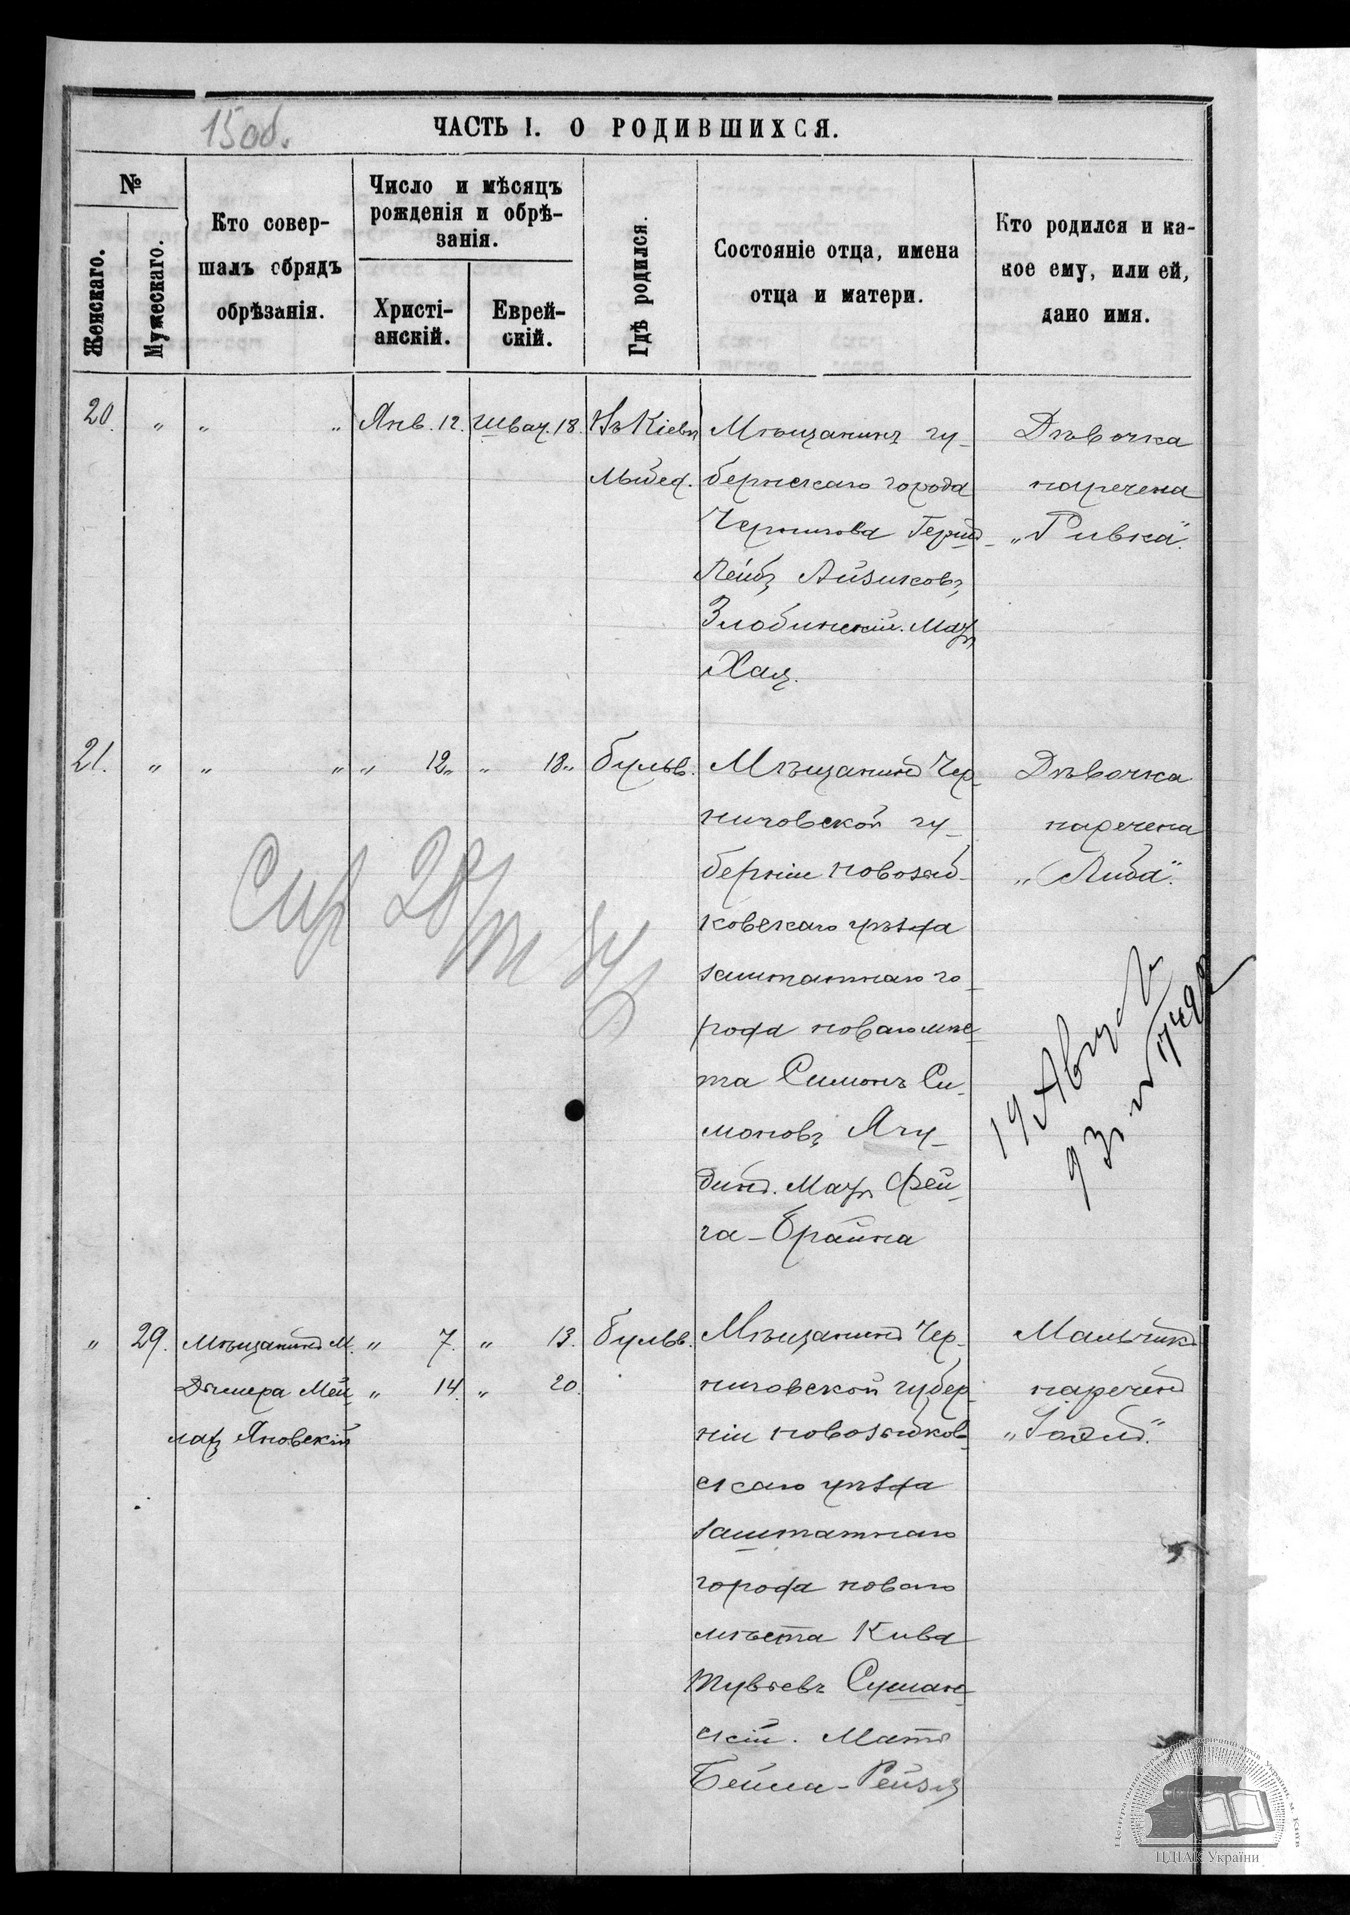 15об.
ЧАСТЬ I. О РОДИВШИХСЯ.
№
Женскаго.
Мужескаго.
Кто совер-
шалъ обрядъ
обрѣзанія.
Число и мѣсяцъ
рожденія и обрѣ-
занія.
Христі-
анскій.
Еврей-
скій.
Гдѣ родился.
Состояніе отца, имена
отца и матери.
Кто родился и ка-
кое ему, или ей,
дано имя.
20. " " " Янв. 12. Шват. 18. Въ Кіевѣ
Лыбед.
Мѣщанинъ гу-
бернскаго города
Чернигова Герш-
Лейбъ Айзиковъ
Злобинскій. Мать
Хая.
Дѣвочка
наречена
„Ривка".
21. " " " " 12 " 18 бульв.
Мѣщанинъ Чер-
ниговской гу-
берніи новозыб-
ковскаго уѣзда
заштатнаго го-
рода новаго мѣс-
та Симонъ Си-
моновъ Ягу-
динъ. Мать Фей-
га-Брайна
Дѣвочка
наречена
„Либа".
19 Август
" 29. Мѣщанинъ М.
Дымера Мей-
лах Яновскій
" 7. " 13. бульв.
" 14. " 20.
Мѣщанинъ Чер-
ниговской губер-
ніи новозыбков-
скаго уѣзда
заштатнаго
города новаго
мѣста Кива
Тувіевъ Суман-
скій. Мать
Бейла-Рейзя
Мальчикъ
нареченъ
„Іоэлъ".
ЦДІАК України